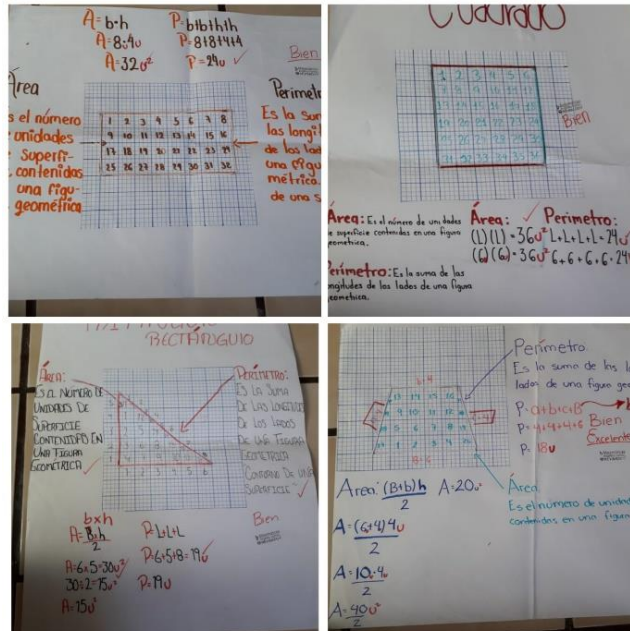 A=b·h
A=8·4u
A=32u²
P=b+b+h+h
P=8+8+4+4
P=24u
Bien
Área
s el número
unidades
superfi-
contenidas
una figu-
geométrica
1 2 3 4 5 6 7 8
9 10 11 12 13 14 15 16
25 26 27 28 29 30 31 32
Perímetro
Es la sum
las longit
de los lado
una figu
métrica.
de una s
Cuadrado
1 2 3 4 5 6
Bien
Área: Es el número de unidades
e superficie contenidas en una figura
geometrica.
Perímetro: Es la suma de las
ongitudes de los lados de una figura
geometrica.
Área:
(L)(L)=36u²
(6)(6)=36u²
Perímetro:
L+L+L+L=24u
6+6+6+6=24
RECTÁNGULO
ÁREA:
ES EL NÚMERO DE
UNIDADES DE
SUPERFICIE
CONTENIDAS EN
UNA FIGURA
GEOMETRICA
PERÍMETRO:
ES LA SUMA
DE LAS LONGITUDES
DE LOS LADOS
DE UNA FIGURA
GEOMETRICA
SUPERFICIE
1 2 3 4 5 6
b×h
A=B×h
2
A=6×5=30u²
30÷2=15u²
A=15u²
P=L+L+L
P=6+5+8=19u
P=19u
Bien
b=4
13 14 15 16
9 10 11 12
5 6 7 8
1 2 3 4
B=6
Perímetro
Es la suma de las l
lados de una figura ge
P=4+4+4+6
P=18u
Bien
Excelente
Área: (B+b)h
2
A=20u²
A=(6+4)4u
2
A=10u·4u
2
A=40u²
2
Área
Es el número de unidad
contenidas en una figura